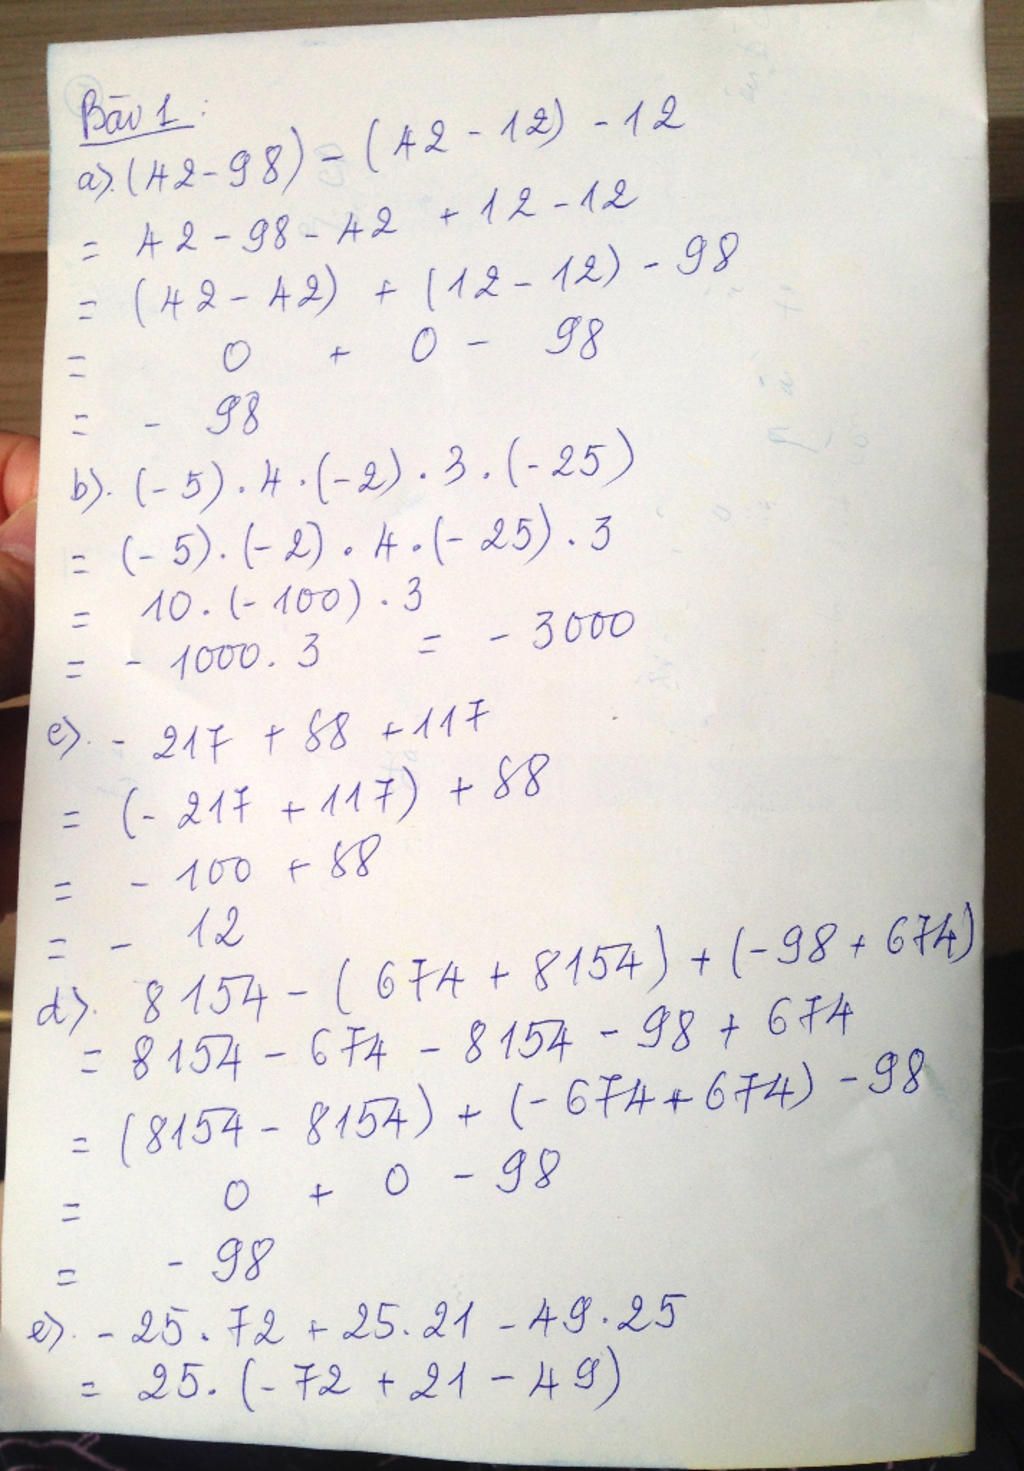 Bài 1:
a). (42-98) - (42 - 12) - 12
= 42 - 98 - 42 + 12 - 12
= (42 - 42) + (12 - 12) - 98
= 0 + 0 - 98
= - 98
b). (-5) . 4 . (-2) . 3 . (-25)
= (-5) . (-2) . 4 . (-25) . 3
= 10 . (-100) . 3
= - 1000 . 3 = - 3000
c). - 217 + 88 + 117
= (- 217 + 117) + 88
= - 100 + 88
= - 12
d). 8154 - (674 + 8154) + (-98 + 674)
= 8154 - 674 - 8154 - 98 + 674
= (8154 - 8154) + (- 674 + 674) - 98
= 0 + 0 - 98
= - 98
e). - 25 . 72 + 25 . 21 - 49 . 25
= 25 . (- 72 + 21 - 49)